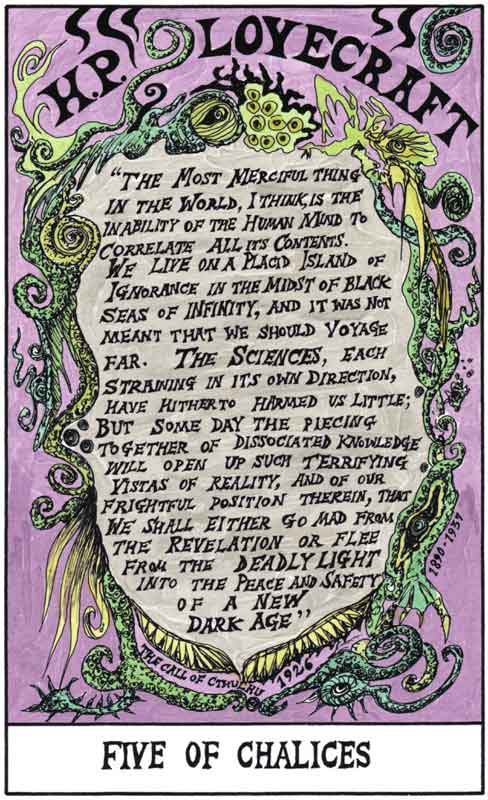 H.P. LOVECRAFT
"THE MOST MERCIFUL THING
IN THE WORLD, I THINK, IS THE
INABILITY OF THE HUMAN MIND TO
CORRELATE ALL ITS CONTENTS.
WE LIVE ON A PLACID ISLAND OF
IGNORANCE IN THE MIDST OF BLACK
SEAS OF INFINITY, AND IT WAS NOT
MEANT THAT WE SHOULD VOYAGE
FAR. THE SCIENCES, EACH
STRAINING IN ITS OWN DIRECTION,
HAVE HITHERTO HARMED US LITTLE;
BUT SOME DAY THE PIECING
TOGETHER OF DISSOCIATED KNOWLEDGE
WILL OPEN UP SUCH TERRIFYING
VISTAS OF REALITY, AND OF OUR
FRIGHTFUL POSITION THEREIN, THAT
WE SHALL EITHER GO MAD FROM
THE REVELATION OR FLEE
FROM THE DEADLY LIGHT
INTO THE PEACE AND SAFETY
OF A NEW
DARK AGE"
1890-1937
THE CALL OF CTHULHU 1926
FIVE OF CHALICES